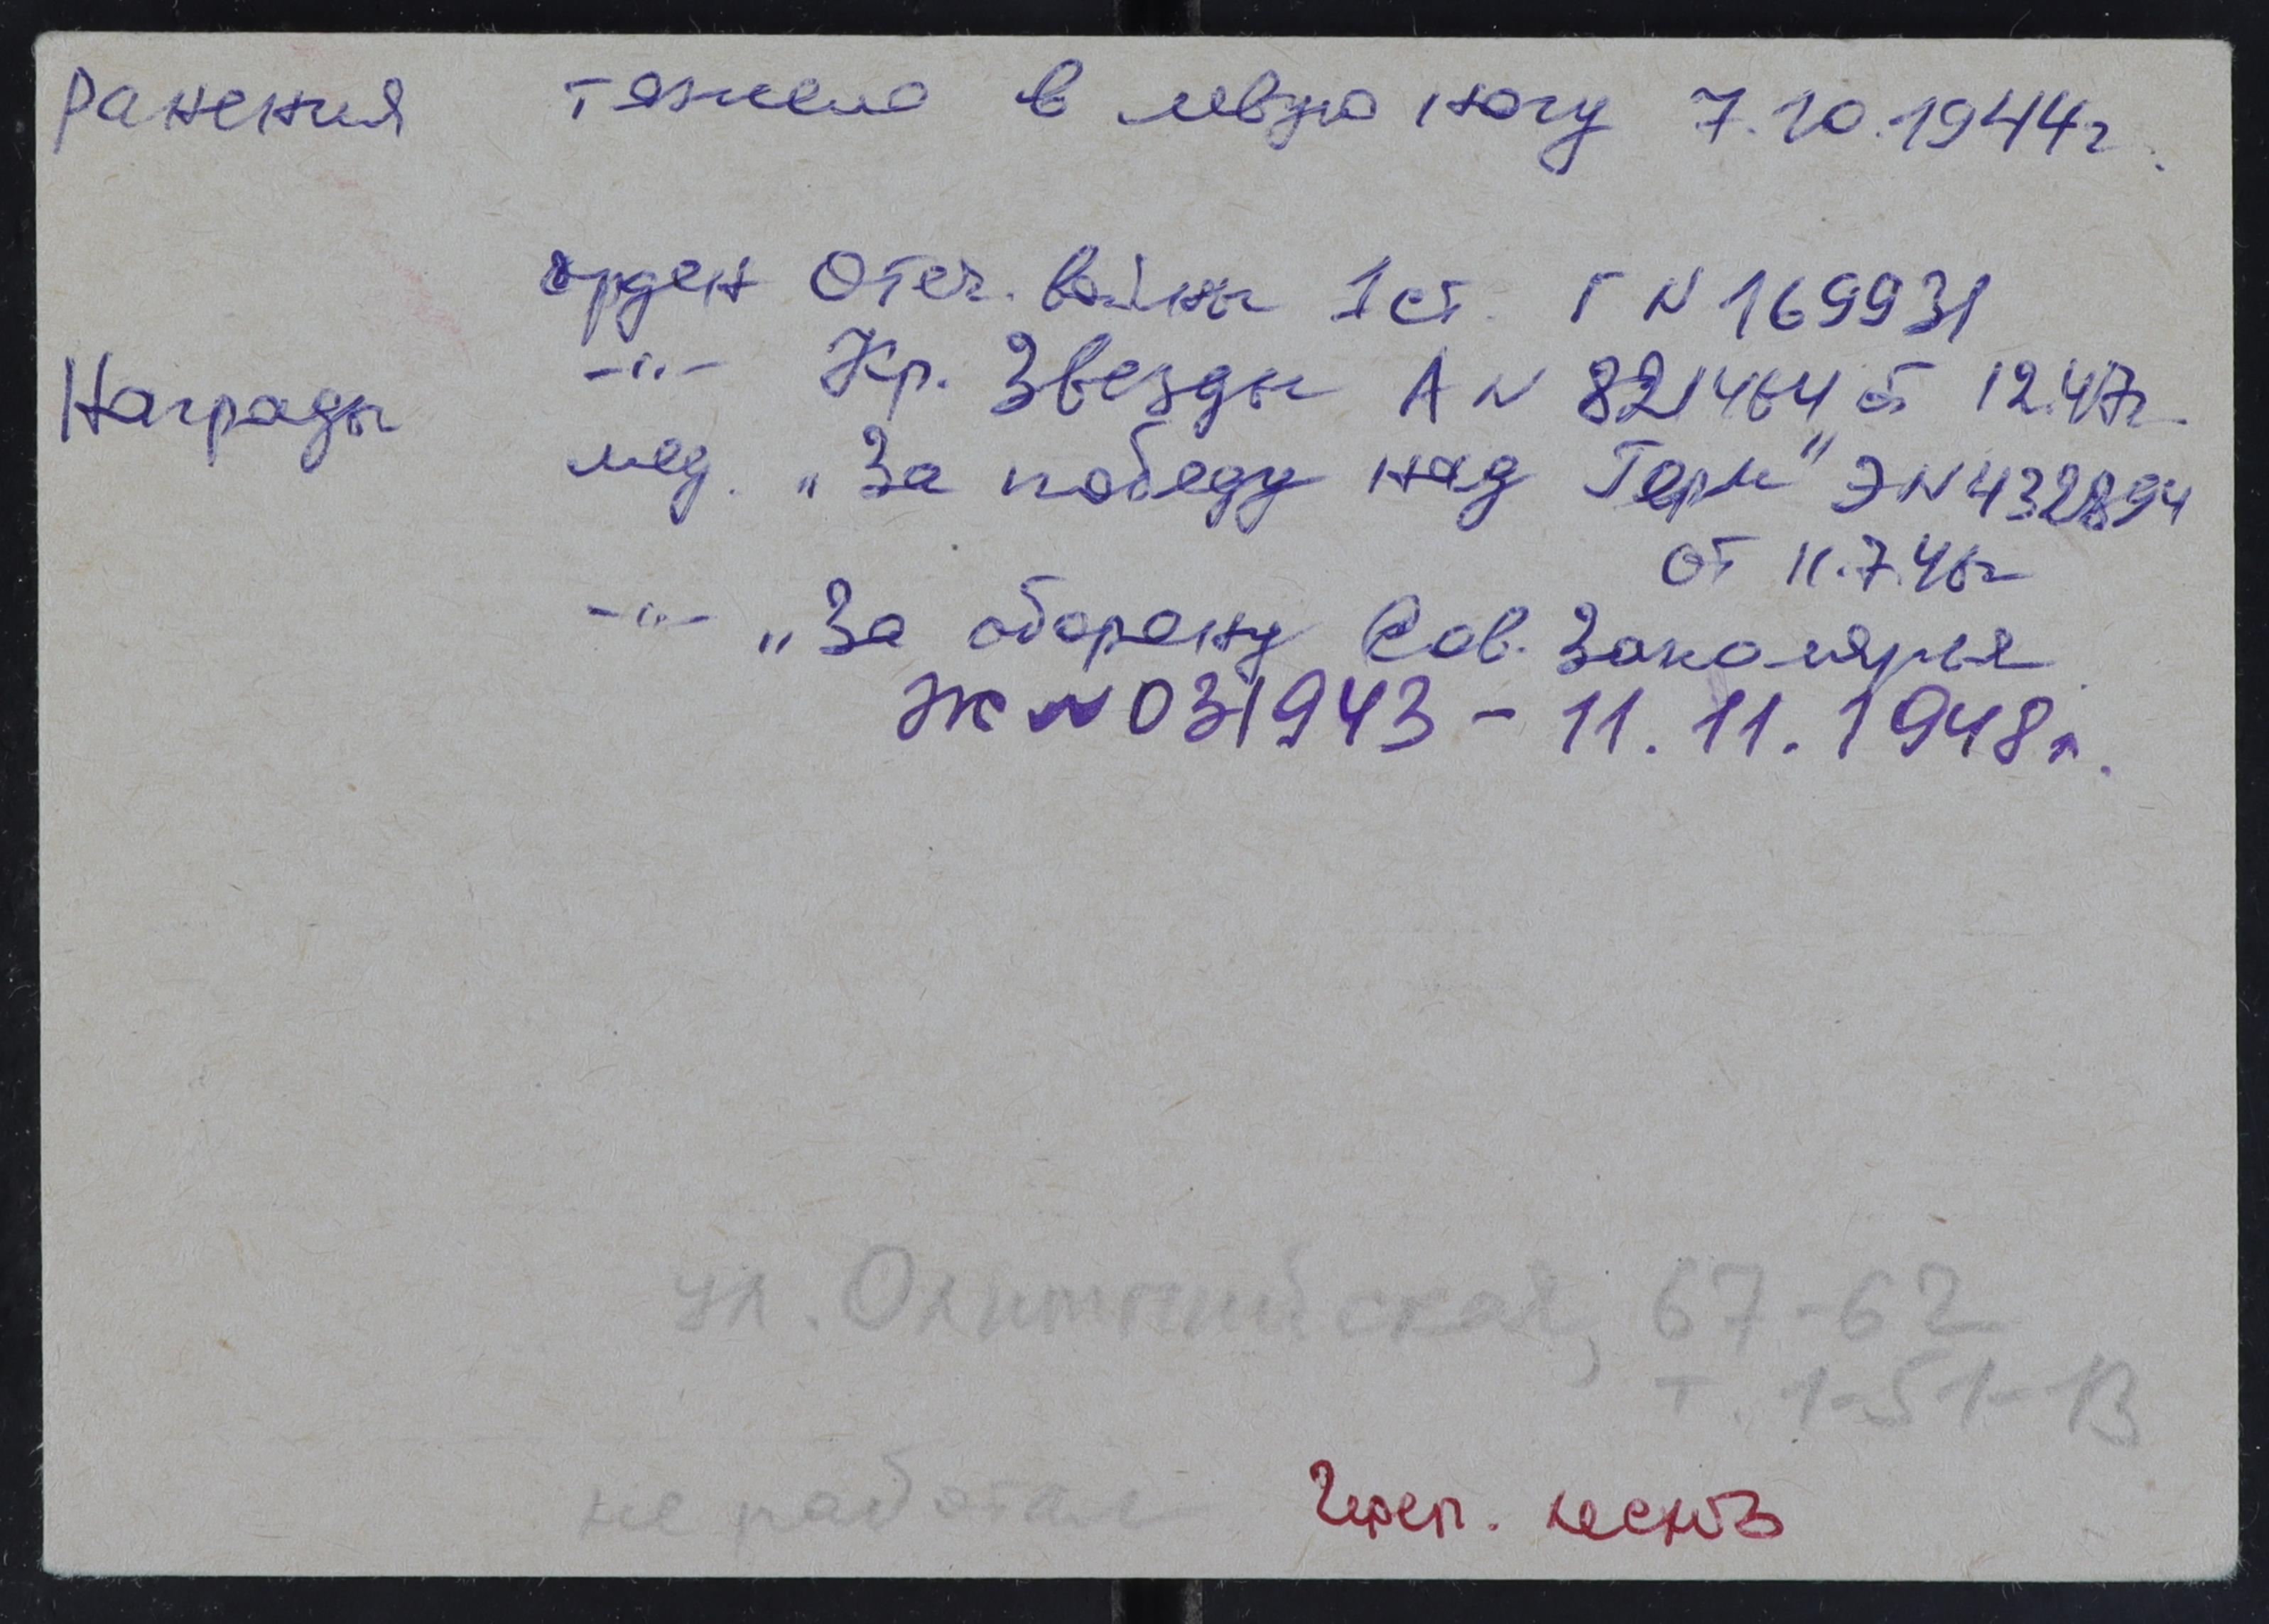 Ранения тяжело в левую ногу 7.10.1944г.
орден Отеч. войны 1 ст. Г N 169931
Награды -"- Кр. Звезды А N 821464 от 12.47г
мед. „За победу над Герм" Э N 432894
от 11.7.46г
-"- „За оборону Сов. Заполярья
Ж N 031943 - 11.11.1948г.
ул. Олимпийская, 67-62
т. 1-51-13
не работал
Череп. леспх